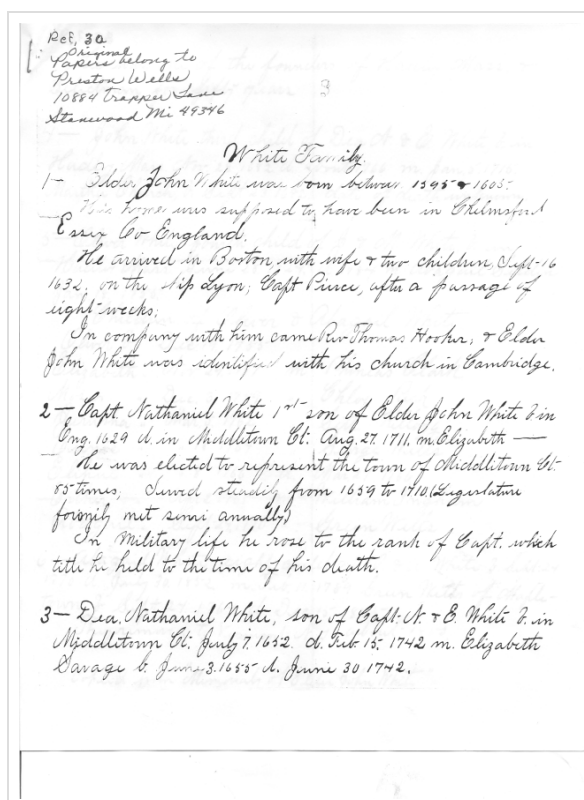 Ref, 30
Original
Papers belong to
Preston Wells
10884 Trapper Lane
Stanwood Mi 49346
3
White Family.
1- Elder John White was born between 1595 & 1605.
His home was supposed to have been in Chelmsford
Essex Co England.
He arrived in Boston with wife & two children, Sept-16
1632, on the Ship Lyon; Capt Pierce, after a passage of
eight-weeks;
In company with him came Rev Thomas Hooker; & Elder
John White was identified with his church in Cambridge.
2 - Capt. Nathaniel White 1st son of Elder John White b in
Eng. 1629 d. in Middletown Ct: Aug. 27. 1711. m Elizabeth —
He was elected to represent the town of Middletown Ct-
85 times; Served steadily from 1659 to 1710 (Legislature
formily met semi annually)
In Military life he rose to the rank of Capt. which
title he held to the time of his death.
3 - Dea. Nathaniel White, son of Capt. N. & E. White b. in
Middletown Ct: July 7. 1652. d. Feb 15- 1742 m. Elizabeth
Savage b. June 3. 1655 d. June 30 1742.